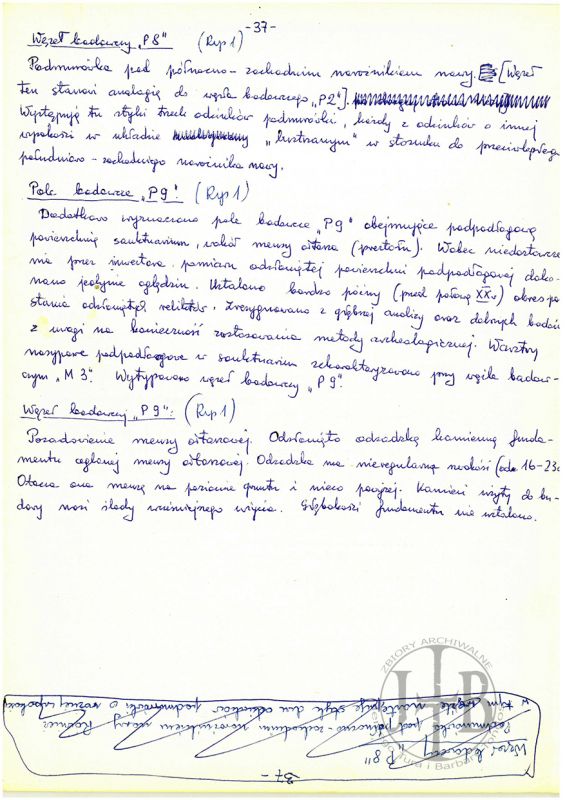 -37-
Węzeł badawczy „P8" (Ryp1)
Podmurówka pod północno-zachodnim narożnikiem nawy. [Węzeł
ten stanowi analogię do węzła badawczego „P2"].
Występują tu styki trzech odcinków podmurówki, każdy z odcinków o innej
wysokości w układzie „lustrzanym" w stosunku do przeciwległego
południowo-zachodniego narożnika nawy.
Pole badawcze „P9". (Ryp1)
Dodatkowo wyznaczono pole badawcze „P9" obejmujące podpodłogową
powierzchnię sanktuarium, wokół mensy ołtarza (prestołu). Wobec niedostarcze
nia przez inwestora, pomiaru odsłoniętej powierzchni podpodłogowej doko-
nano jedynie oględzin. Ustalono bardzo późny (przed połową XXw) okres po
stania odsłoniętych reliktów. Zrezygnowano z głębszej analizy oraz dalszych badań
z uwagi na konieczność zastosowania metody archeologicznej. Warstwy
nasypowe podpodłogowe w sanktuarium scharakteryzowano przy węźle badaw-
czym „M3". Wytypowano węzeł badawczy „P9".
Węzeł badawczy „P9": (Ryp1)
Posadowienie mensy ołtarzowej. Odsłonięto odsadzkę kamienną funda-
mentu ceglanej mensy ołtarzowej. Odsadzka ma nieregularną szerokość (od 16-23c
Otacza ona mensę na poziomie gruntu i nieco powyżej. Kamień użyty do bu-
dowy nosi ślady wcześniejszego użycia. Głębokości fundamentu nie ustalono.
ZBIORY ARCHIWALNE
JTLB
37-
Węzeł badawczy „P8"
Podmurówka pod północno-zachodnim narożnikiem nawy Również
w tym węźle następuje styk dwu odcinków podmurówki o różnej wysokości